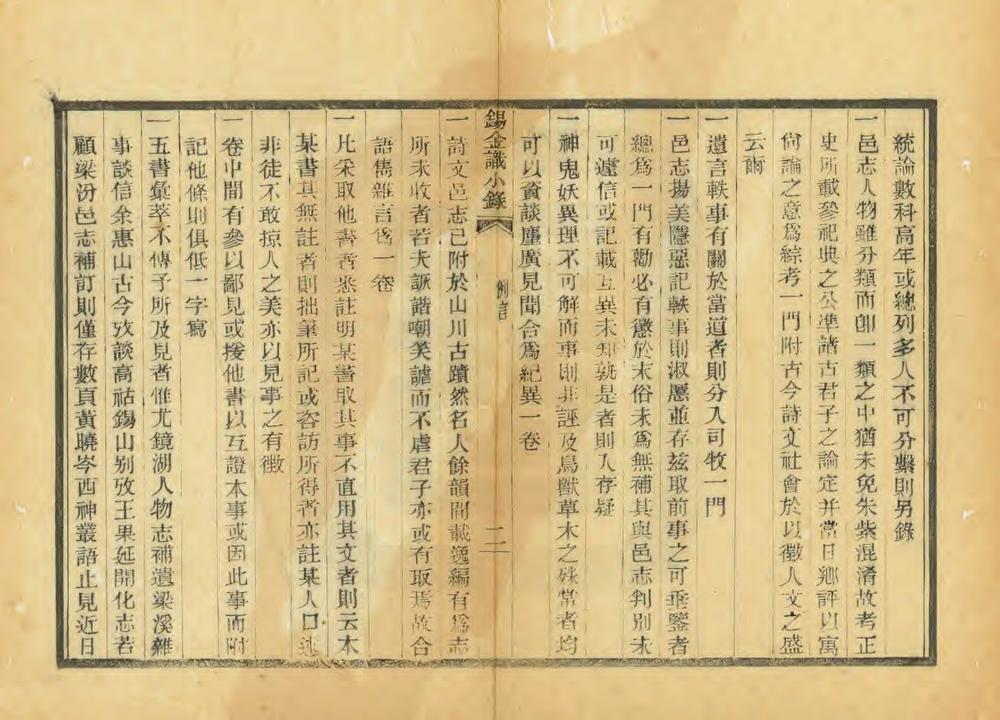 統論數科高年或總列多人不可分繫則另錄
一邑志人物雖分類而卽一類之中猶未免朱紫混淆故考正
史所載參祀典之公準諸古君子之論定并當日鄉評以寓
尙論之意爲綜考一門附古今詩文社會於以徵人文之盛
云爾
一遺言軼事有關於當道者則分入司牧一門
一邑志揚美隱惡記軼事則淑慝並存玆取前事之可垂鑒者
總爲一門有勸必有懲於末俗未爲無補其與邑志判別未
可遽信或記載互異未知孰是者則入存疑
一神鬼妖異理不可解而事則非誣及鳥獸草木之殊常者均
可以資談麈廣見聞合爲紀異一卷
錫金識小錄
例言
二
一詩文邑志已附於山川古蹟然名人餘韻閒載逸編有爲志
所未收者若夫詼諧嘲笑謔而不虐君子亦或有取焉故合
語雋雜言爲一卷
一凡采取他書者悉註明某書取其事不直用其文者則云本
某書其無註者則拙筆所記或咨訪所得者亦註某人口述
非徒不敢掠人之美亦以見事之有徵
一卷中間有參以鄙見或援他書以互證本事或因此事而附
記他條則俱低一字寫
一五書彙萃不傳予所及見者惟尤鏡湖人物志補遺梁溪雜
事談信余惠山古今攷談高祜錫山别攷王果延開化志若
顧梁汾邑志補訂則僅存數頁黃曉岑西神叢語止見近日